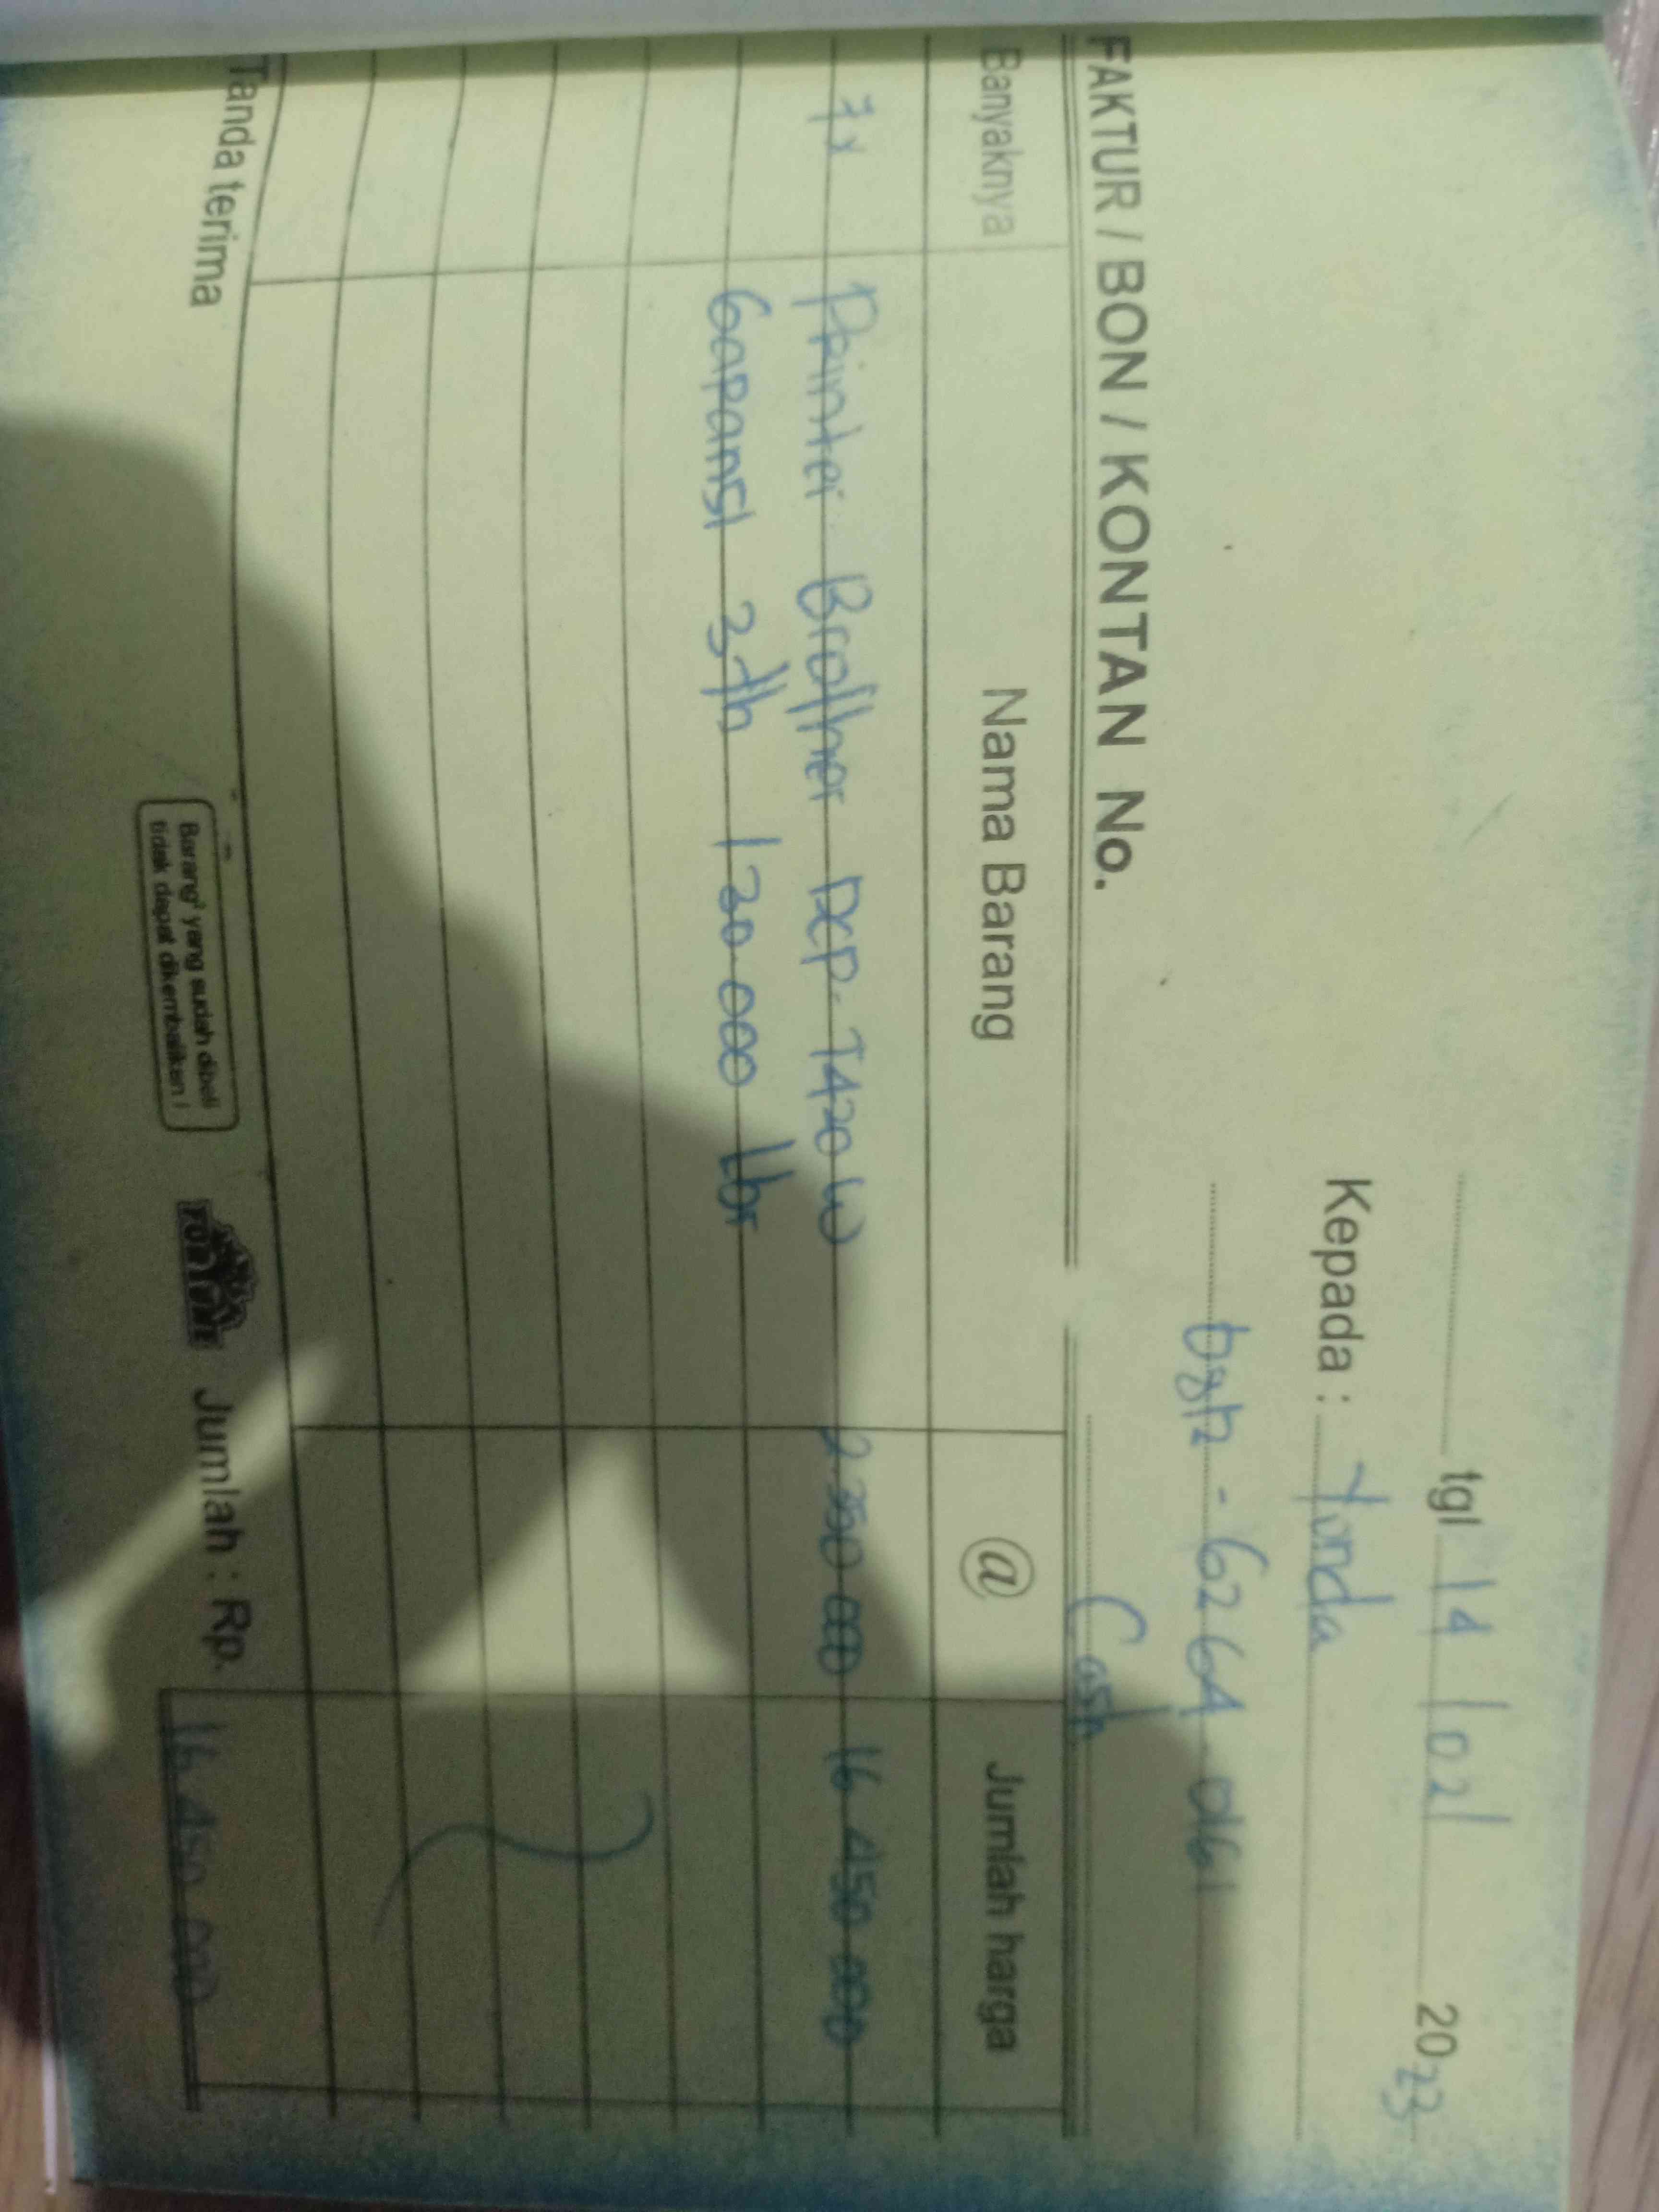 tgl 14 / 02 / 2023
Kepada : Yunda
- 6264
FAKTUR / BON / KONTAN No.
Cash
Banyaknya Nama Barang @ Jumlah harga
7x Printer Brother DCP-T420W 2.350.000 16.450.000
Garansi 3th / 30.000 lbr
Tanda terima
Barang² yang sudah dibeli
tidak dapat dikembalikan !
Jumlah : Rp. 16.450.000